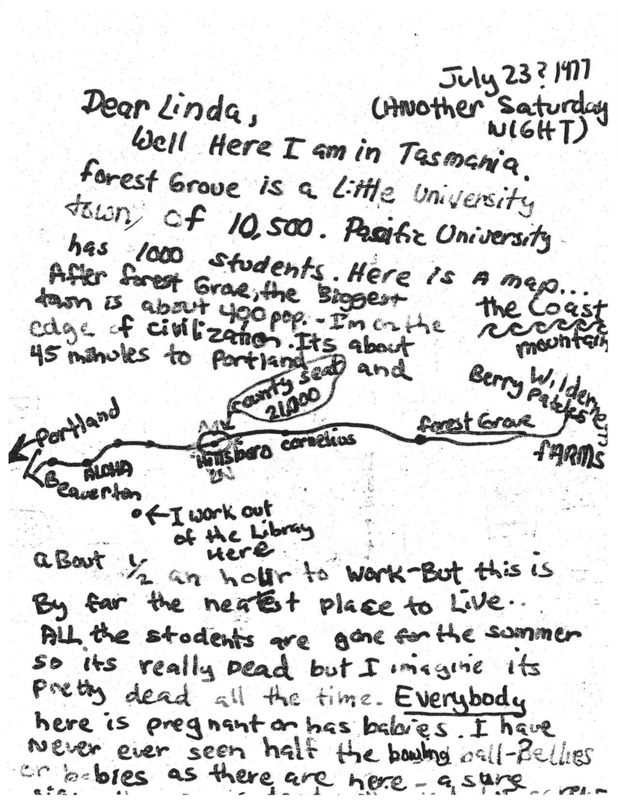 July 23? 1977
(ANother Saturday
NIGHT)
Dear Linda,
Well Here I am in Tasmania.
Forest Grove is a Little University
town of 10,500. Pacific University
has 1000 students. Here is a map...
After Forest Grove, the Biggest
town is about 400 pop. - I'm on the
edge of civilization. Its about
45 minutes to Portland and
the Coast
mountain
Wilderne
Berry Patches
FARMS
County seat
21,000
Portland
Beaverton
ALOHA
Hillsboro
Cornelius
Forest Grove
←I work out
of the Library
Here
about 1/2 an hour to work-But this is
By far the nearest place to Live..
ALL the students are gone for the summer
so its really Dead but I imagine its
pretty dead all the time. Everybody
here is pregnant or has babies. I have
Never ever seen half the bowling ball-Bellies
or babies as there are here - a sure